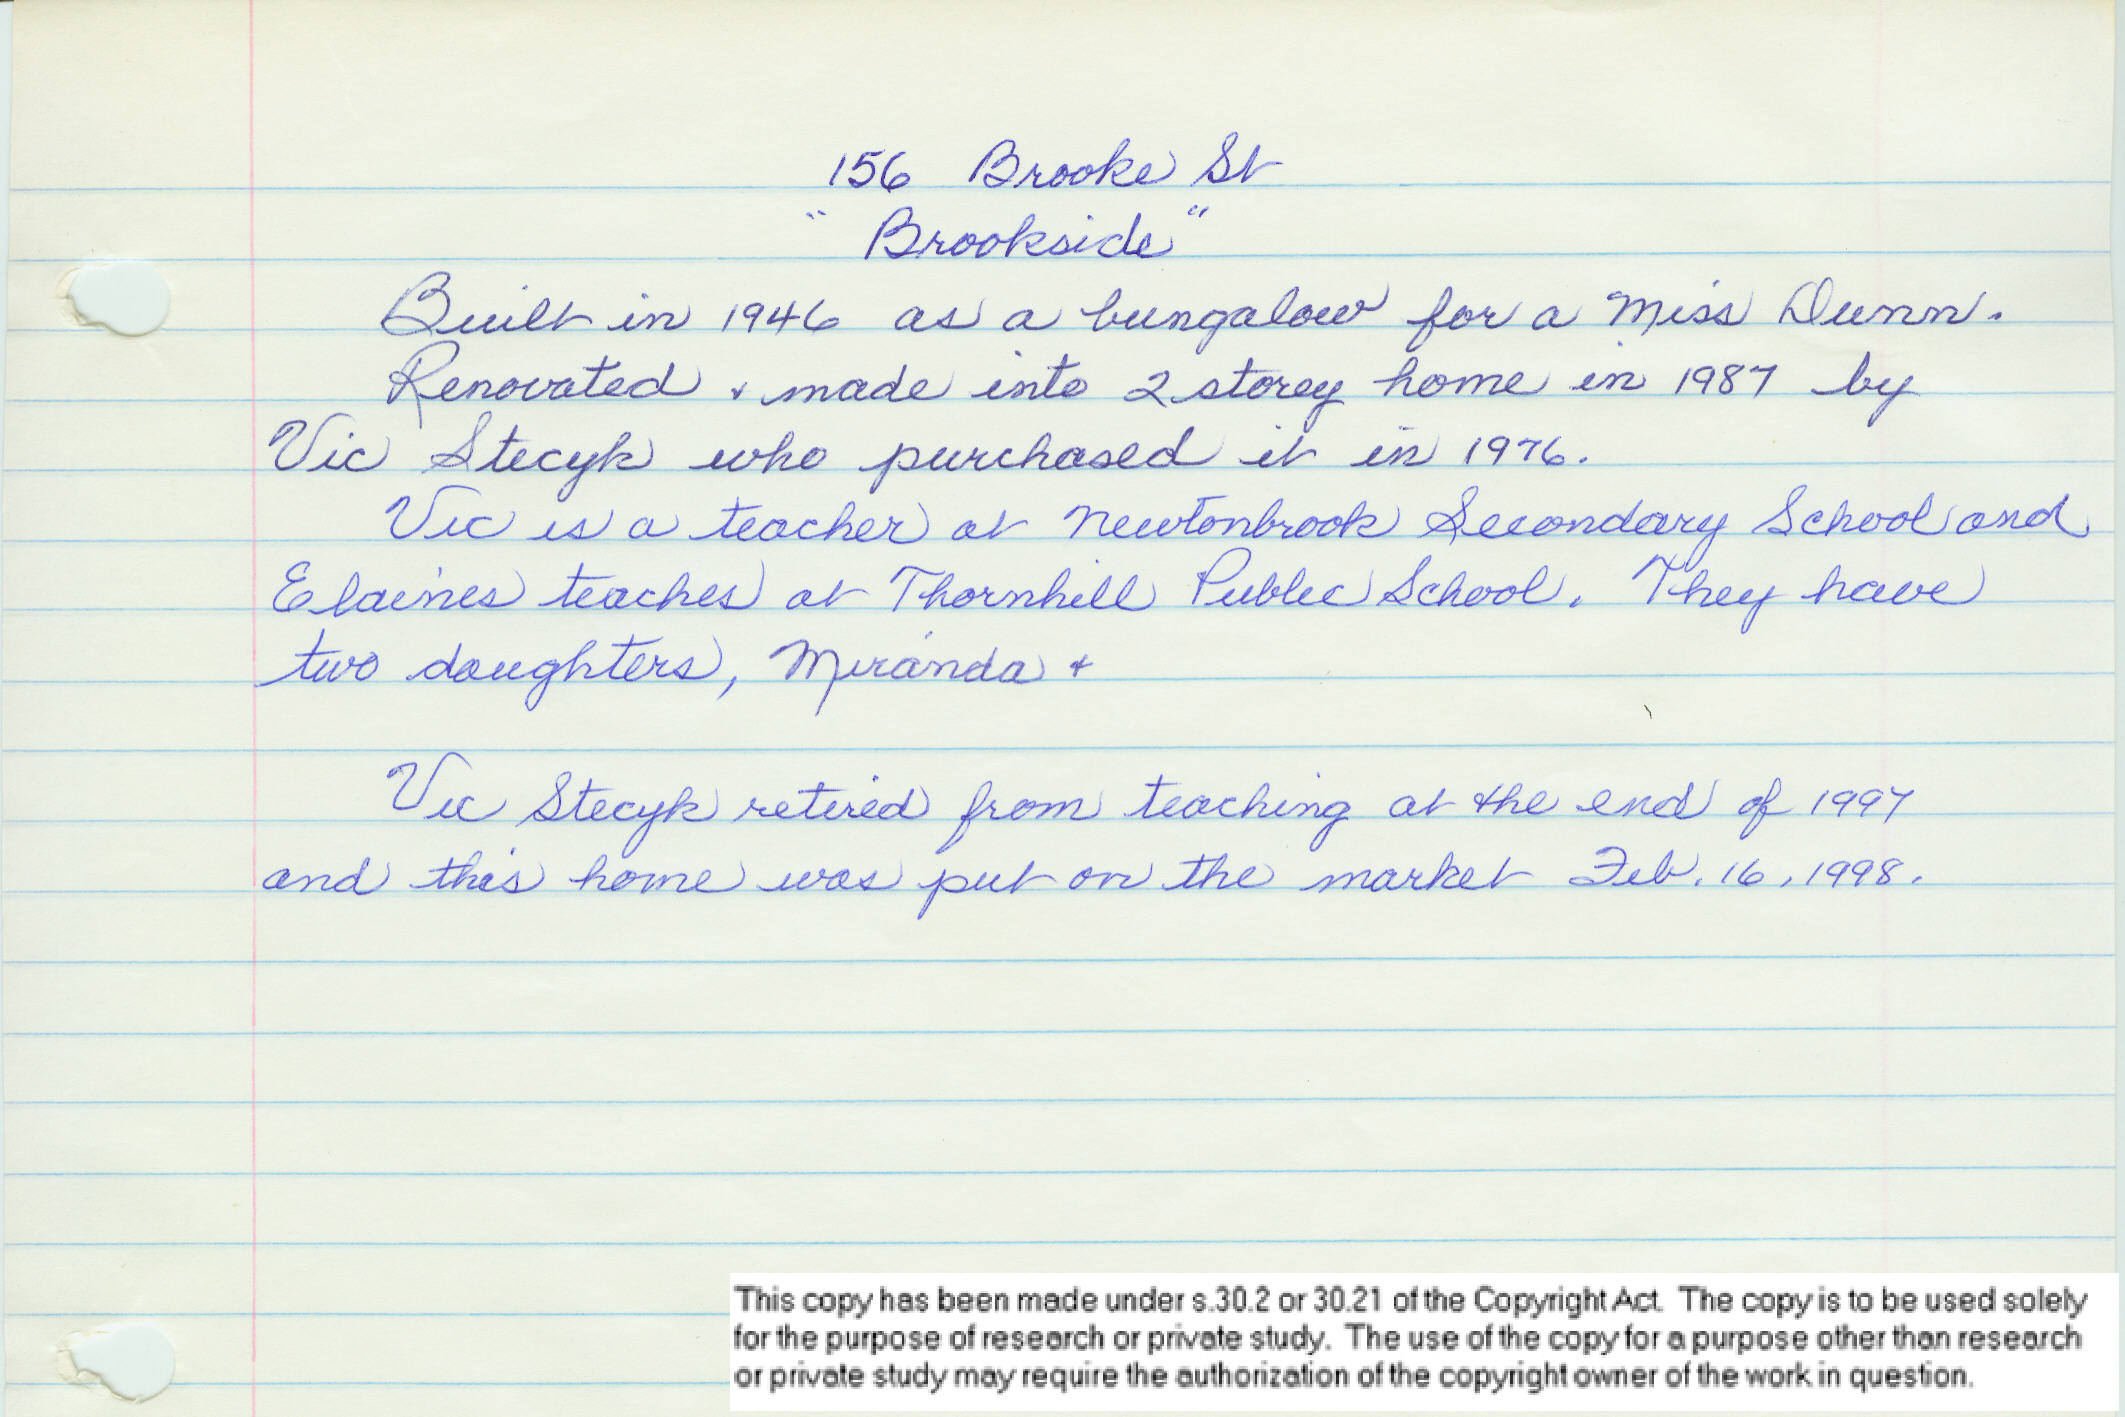 156 Brooke St
"Brookside"
Built in 1946 as a bungalow for a Miss Dunn.
Renovated & made into 2 storey home in 1987 by
Vic Stecyk who purchased it in 1976.
Vic is a teacher at Newtonbrook Secondary School and
Elaines teaches at Thornhill Public School. They have
two daughters, Miranda &
Vic Stecyk retired from teaching at the end of 1997
and this home was put on the market Feb. 16, 1998.
This copy has been made under s.30.2 or 30.21 of the Copyright Act. The copy is to be used solely
for the purpose of research or private study. The use of the copy for a purpose other than research
or private study may require the authorization of the copyright owner of the work in question.